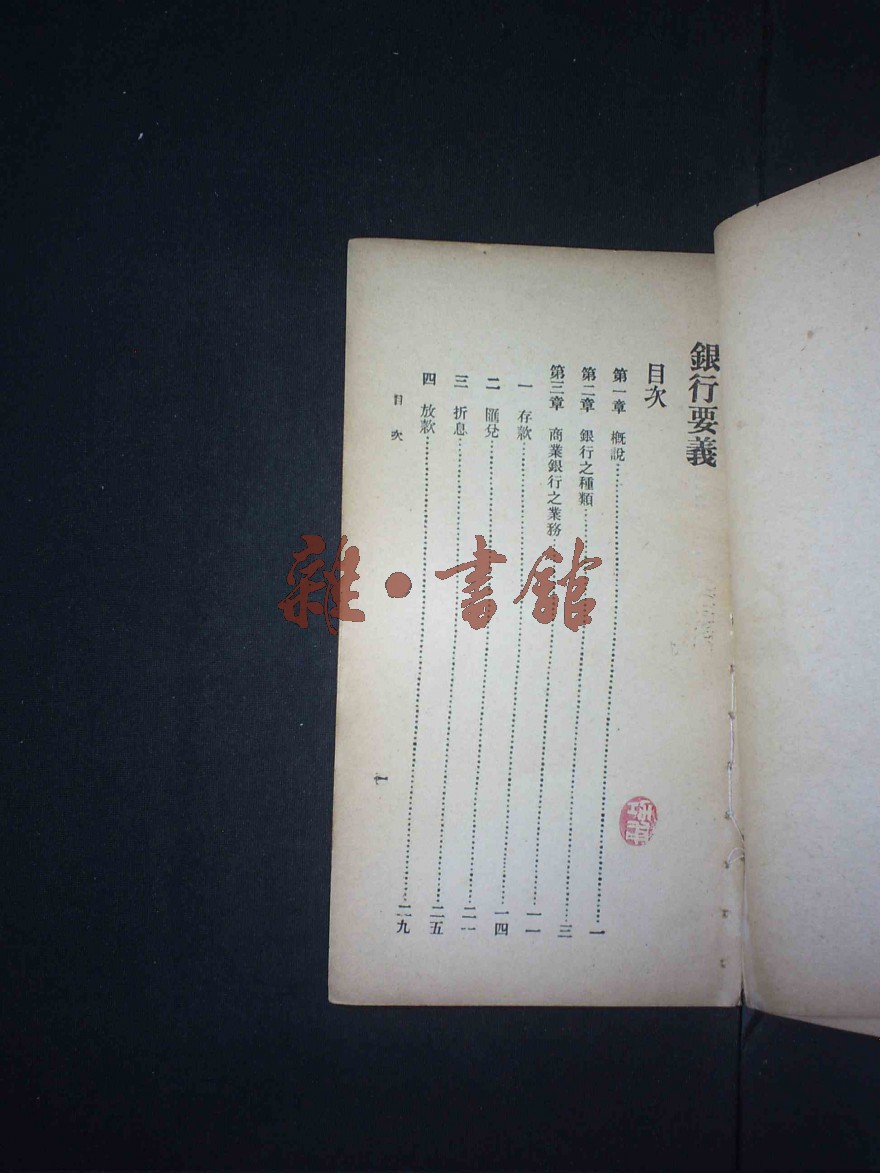 銀行要義
目次
第一章 概說……一
第二章 銀行之種類……三
第三章 商業銀行之業務……一一
一 存款……一四
二 匯兌……二一
三 折息……二五
四 放款……二九
目次
一
雜·書館